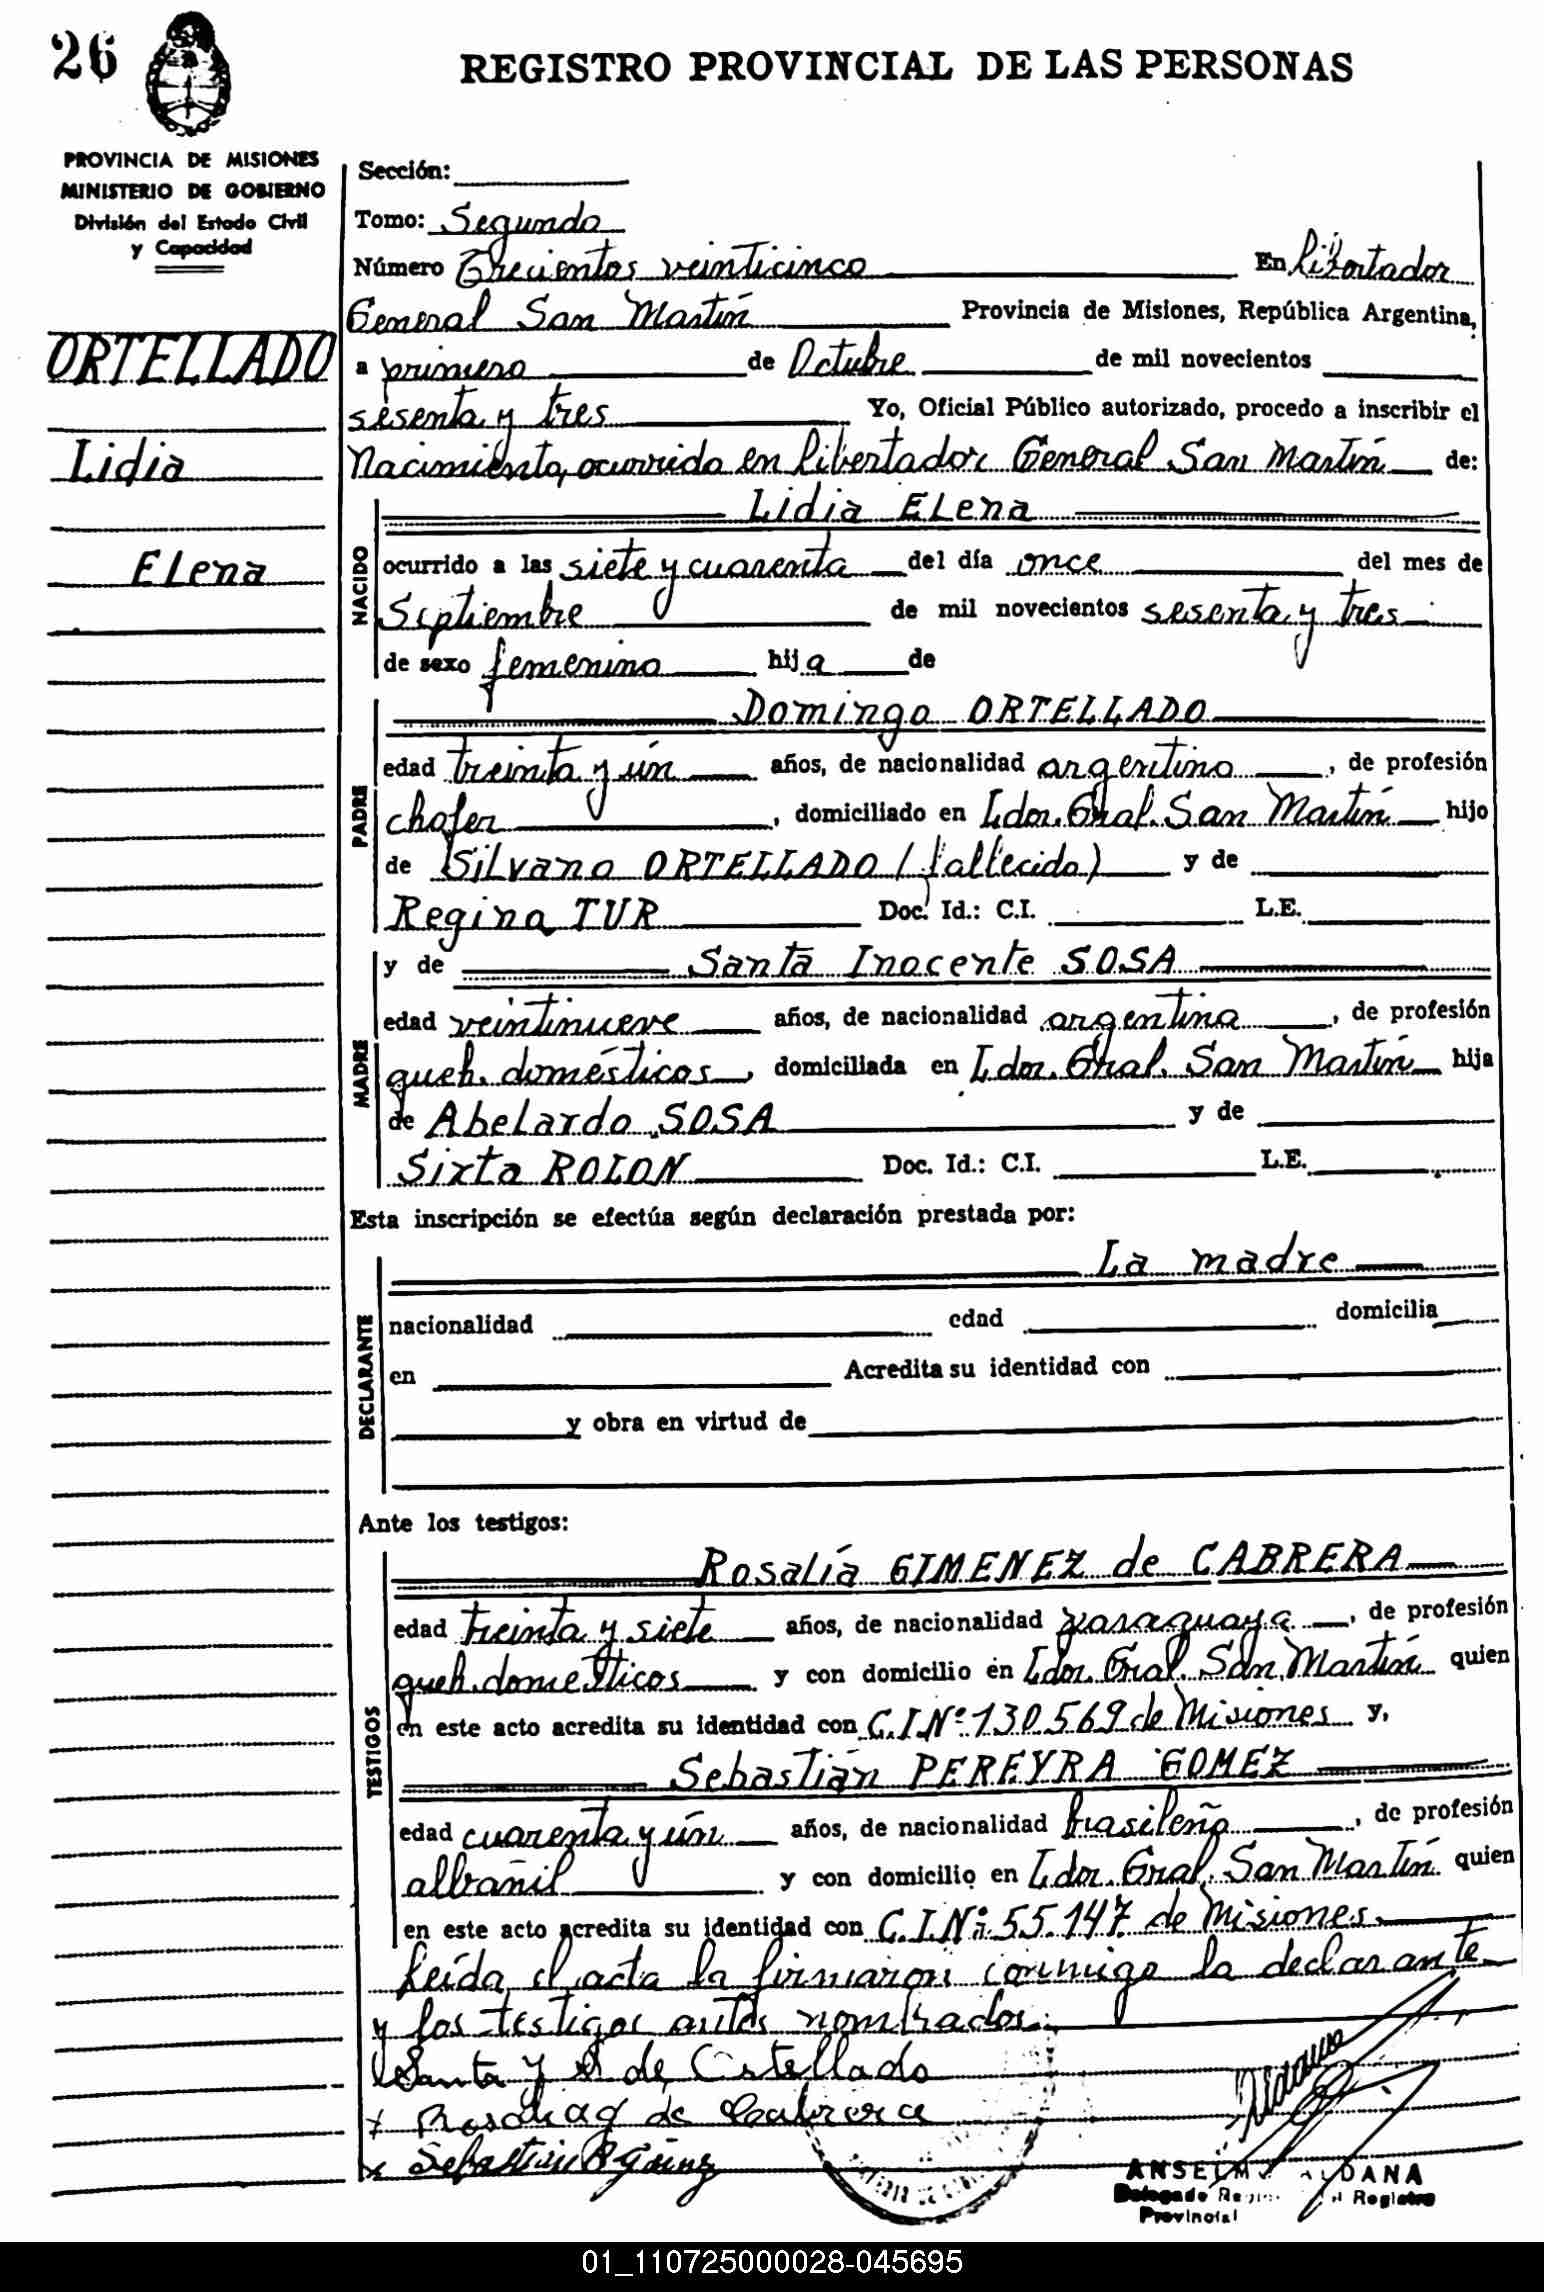 26
REGISTRO PROVINCIAL DE LAS PERSONAS
PROVINCIA DE MISIONES
MINISTERIO DE GOBIERNO
División del Estado Civil
y Capacidad
ORTELLADO
Lidia
Elena
Sección:
Tomo: Segundo
Número Trecientos veinticinco En Libertador
General San Martín Provincia de Misiones, República Argentina,
a primero de Octubre de mil novecientos
sesenta y tres Yo, Oficial Público autorizado, procedo a inscribir el
Nacimiento, ocurrido en Libertador General San Martín de:
Lidia Elena
NACIDO
ocurrido a las siete y cuarenta del día once del mes de
Septiembre de mil novecientos sesenta y tres
de sexo femenino hija de
Domingo ORTELLADO
PADRE
edad treinta y ún años, de nacionalidad argentino, de profesión
chofer, domiciliado en Ldor. Gral. San Martín hijo
de Silvano ORTELLADO (fallecido) y de
Regina TUR Doc. Id.: C.I. L.E.
y de Santa Inocente SOSA
MADRE
edad veintinueve años, de nacionalidad argentina, de profesión
queh. domésticos, domiciliada en Ldor. Gral. San Martín hija
de Abelardo SOSA y de
Sixta ROLON Doc. Id.: C.I. L.E.
Esta inscripción se efectúa según declaración prestada por:
La madre
DECLARANTE
nacionalidad edad domicilia
en Acredita su identidad con
y obra en virtud de
Ante los testigos:
Rosalía GIMENEZ de CABRERA
TESTIGOS
edad treinta y siete años, de nacionalidad paraguaya, de profesión
queh. domésticos y con domicilio en Ldor. Gral. San Martín quien
en este acto acredita su identidad con C.I.Nº 130.569 de Misiones y,
Sebastián PEREYRA GOMEZ
edad cuarenta y ún años, de nacionalidad brasileña, de profesión
albañil y con domicilio en Ldor. Gral. San Martín quien
en este acto acredita su identidad con C.I.Nº 55.147 de Misiones.
Leída el acta la firmaron conmigo la declarante
y los testigos antes nombrados.
Santa Y S de Ortellado
x Rosalia G de Cabrera
x Sebastian P
ANSELMO ALDANA
Delegado Registro
Provincial
01_110725000028-045695